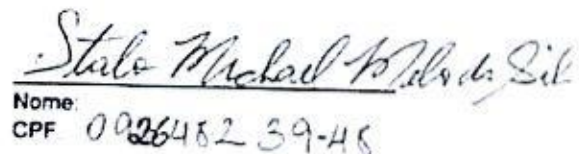 Stalo Michael Melo da Sil
Nome:
CPF 0926482 39-48